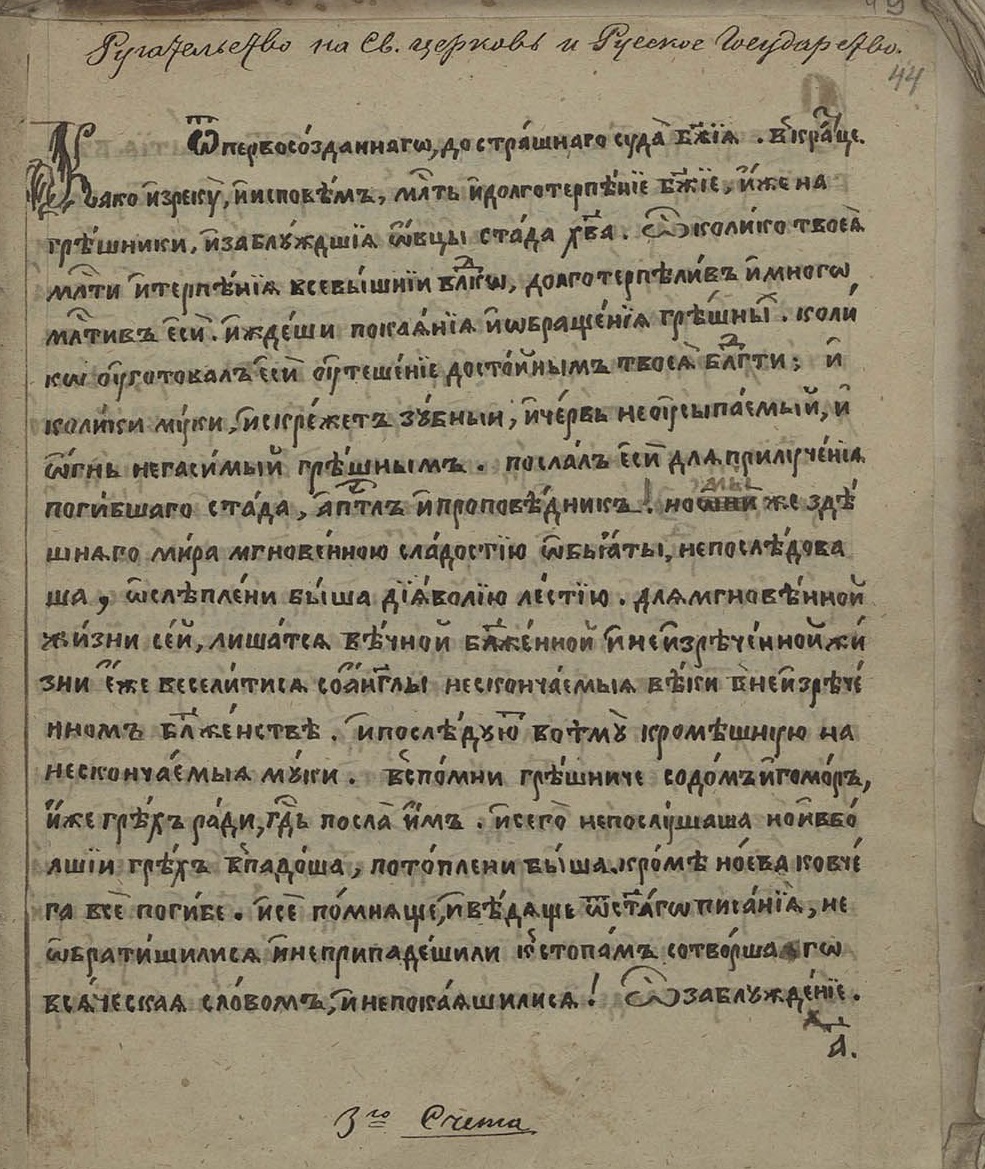 Ругательство на Св. церковь и Русское Государство.
44
Ѿ первосо́зданнагѡ, до стра́шнаго суда̀ бж҃їѧ. вкра́тце.
Ка́ко и҆зрекꙋ̀, и҆ исповѣ́мъ, мл҃ть и҆ долготерпѣ́нїе бж҃їе, и҆́же на
грѣ́шники, и҆ заблꙋ́ждшїѧ ѻ҆вцы ста́да хв҃а. Ѽ коли́ко твоеѧ̀
мл҃ти и҆ терпѣ́нїѧ всевы́шнїи вл҃кѡ, долготерпѣли́въ и҆ многѡ
мл҃тивъ є҆сѝ. и҆ жде́ши покаѧ́нїѧ и҆ ѡ҆браще́нїѧ грѣ́шны́й. коли́
кѡ ᲂу҆готовалъ є҆сѝ ᲂу҆теше́нїе досто́йнымъ твоеѧ̀ бл҃гти; и҆
коли́ки мꙋ́ки, и҆ скре́жетъ зꙋ́бныи, и҆ че́рвь неᲂу҆сыпа́емый, и҆
ѻ҆гнь негаси́мый грѣ́шнымъ. посла́лъ є҆сѝ для прилꙋче́нїѧ
поги́бшаго ста́да, а҆пⷭ҇тлъ и҆ проповѣ́дникъ! но мы же здѣ́
шнѧго ми́ра мгнове́нною сла́достїю ѡ҆б̾ѧ́ты, непослѣ́дова
ша, ѡ҆слѣпле́ни бы́ша дїѧ́волїю ле́стїю. для мгновѣ́нной
жи́зни се́й, лиша́тсѧ вѣ́чной бл҃же́нной и҆ неи҆зрѣче́нной жи́
зни є҆́же весели́тисѧ со а҆́нг҃лы несконча́емыѧ вѣ́ки в неи҆зрѣче́
нномъ бл҃же́нствѣ. и҆ послѣ́дꙋю҆ во тмꙋ̀ кромѣ́шнꙋю на
несконча́емыѧ мꙋ́ки. вспо́мни грѣ́шниче содо́мъ и҆ гомо́ръ,
и҆́же грѣ́хъ ра́ди, гдⷭ҇ь посла̀ и҆̀мъ. и҆ сего̀ непослꙋ́шаша но и҆ в бо́
лшїи грѣ́хъ впадо́ша, пото́плени бы́ша. кро́мѣ но́ева ковче́
га всѐ поги́бе. и҆ сѐ по́мнѧще, и҆ вѣ́дѧще ѿ ст҃а́гѡ писа́нїѧ, не
ѡ҆брати́шилисѧ и҆ неприпаде́шили к стопа́мъ сотво́ршагѡ
всѧ́ческаѧ сло́вомъ, и҆ непока́ѧшилисѧ! Ѽ заблꙋжде́нїе.
а҃.
3го Счета